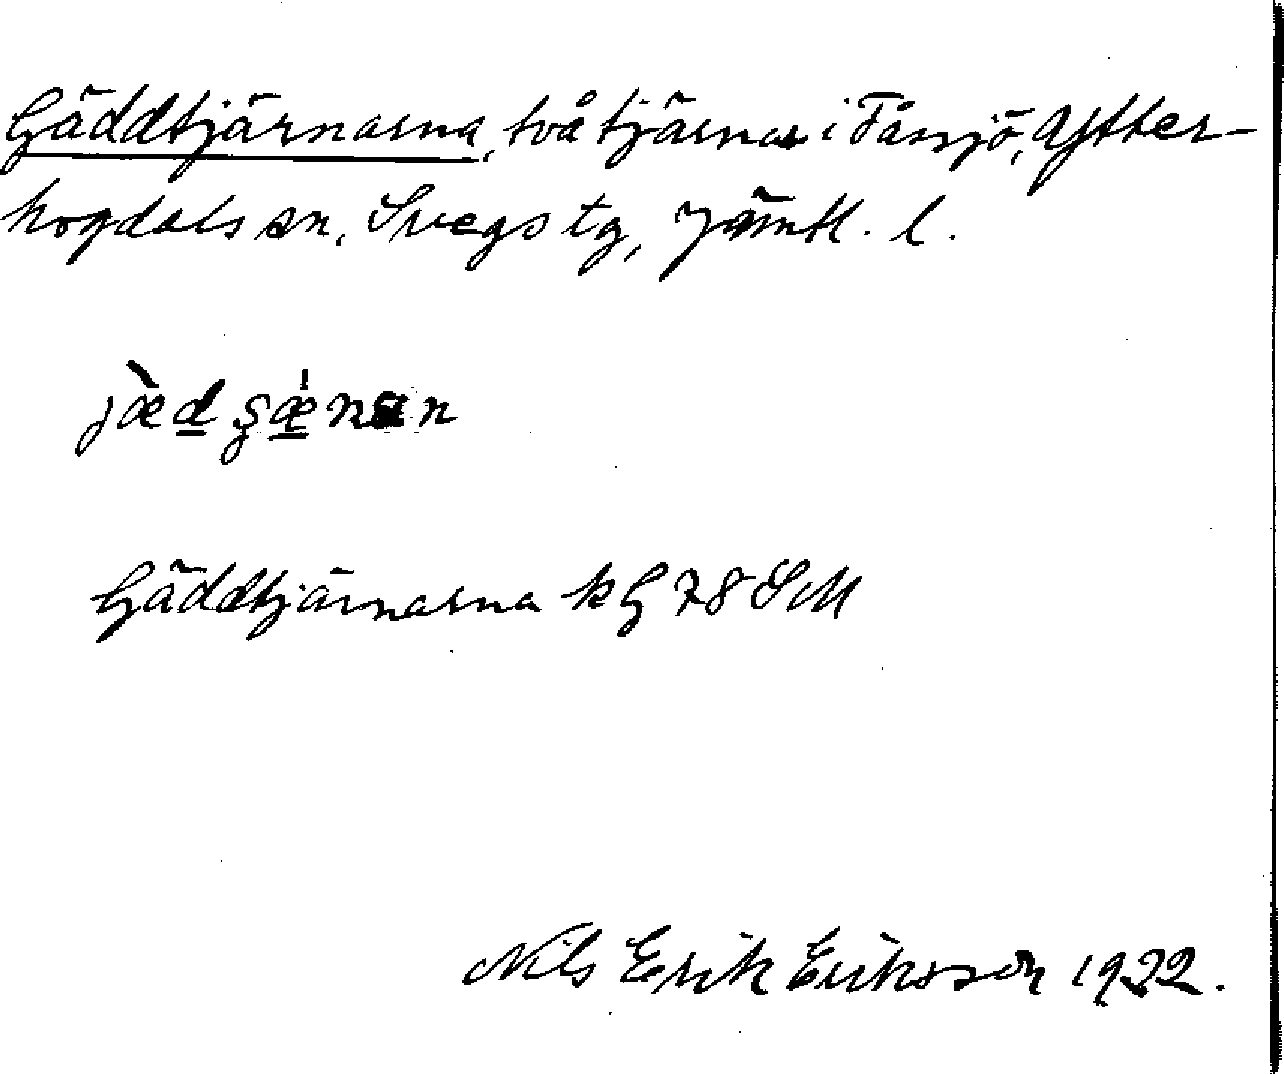 Gäddtjärnarna, två tjärnar i Fåssjö, Ytter-
hogdals sn, Svegs tg, Jämtl. l.
Gäddtjärnarna k G 78 SM
Nils Erik Eriksson 1922.